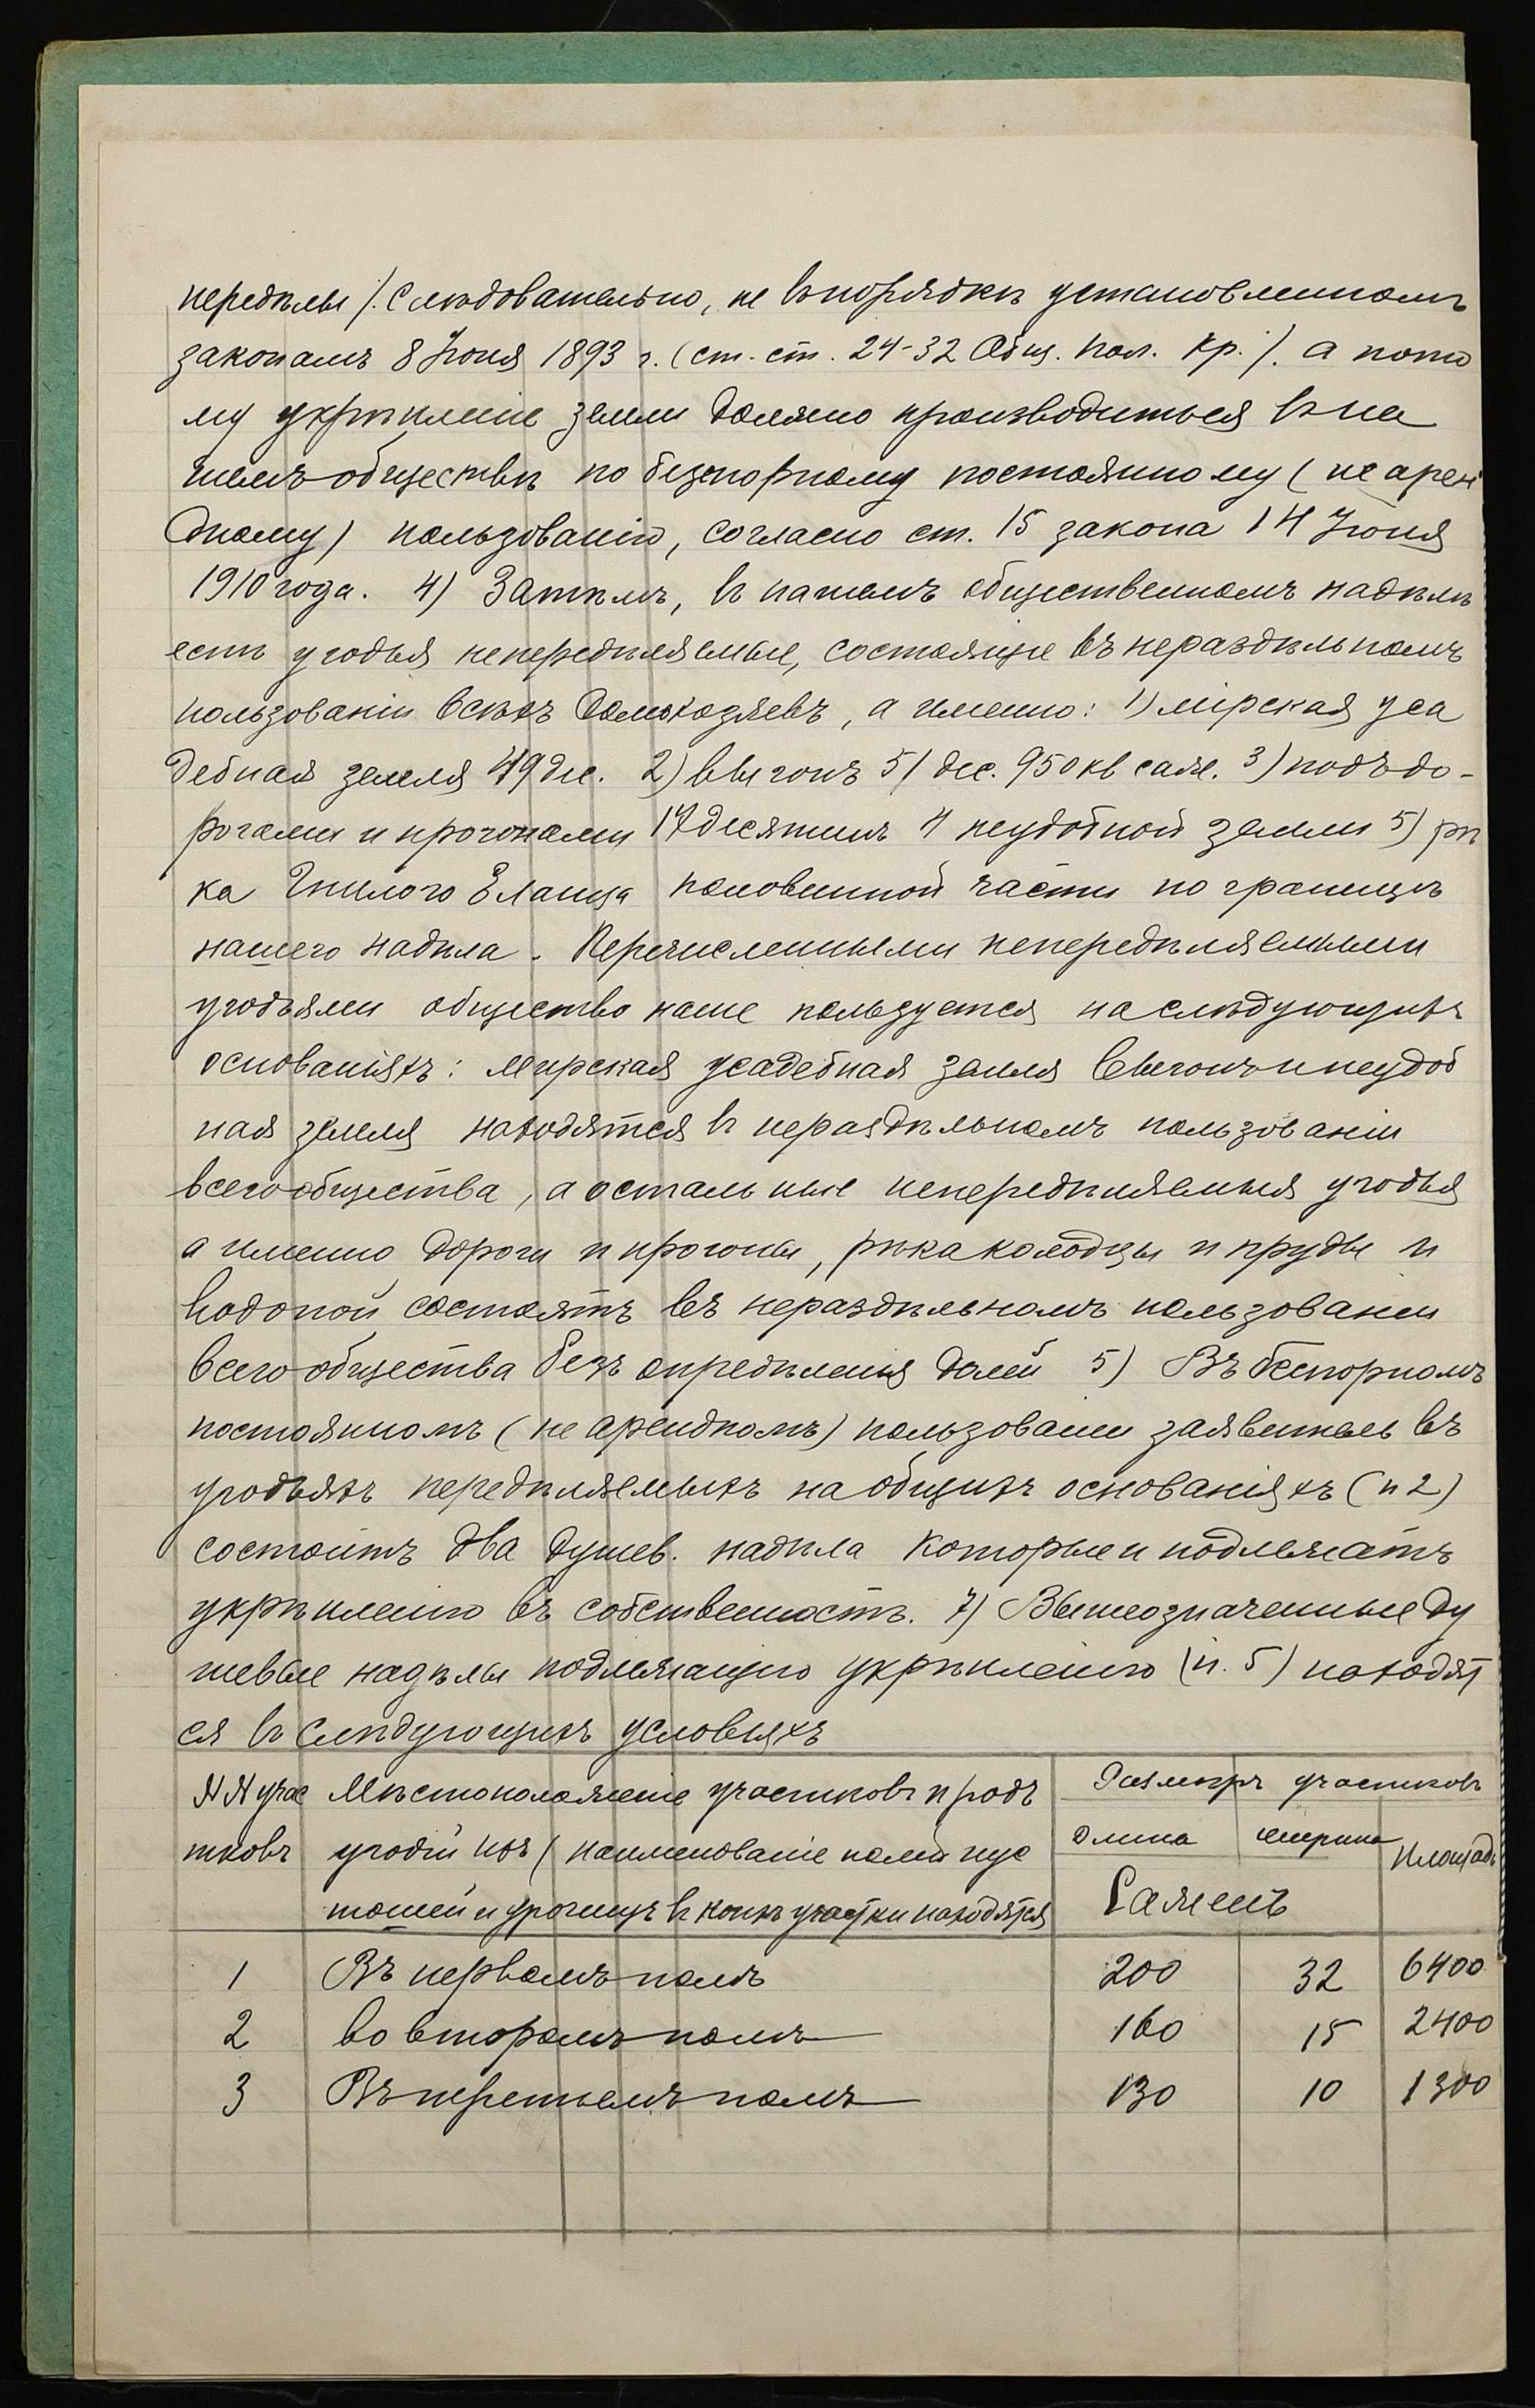 передѣлы). Слѣдовательно, не въ порядкѣ установленномъ
закономъ 8 Іюня 1893 г. (ст. ст. 24-32 Общ. Пол. Кр.). а пото
му укрѣпленіе земли должно производиться въ на
шемъ обществѣ по безспорному постоянному (не арен
дному) пользованію, согласно ст. 15 закона 14 Іюня
1910 года. 4) Затѣмъ, въ нашемъ общественномъ надѣлѣ
есть угодья непередѣляемые, состоящіе въ нераздѣльномъ
пользованіи всѣхъ домохозяевъ, а именно: 1) мірская уса
дебная земля 49 дес. 2) выгонъ 51 дес. 950 кв саж. 3) подъ до-
рогами и прогонами 17 десятинъ 4 неудобной земли 5) рѣ
ка Гнилого Еланца половинной части по границѣ
нашего надѣла. Перечисленными непередѣляемыми
угодьями общество наше пользуется на слѣдующихъ
основаніяхъ: мирская усадебная земля выгонъ и неудоб
ная земля находятся въ нераздѣльномъ пользованіи
всего общества, а остальные непередѣляемыя угодья
а именно дороги и прогоны, рѣка колодцы и пруды и
водопой состоятъ въ нераздѣльномъ пользованіи
всего общества безъ опредѣленія долей 5) Въ безспорномъ
постоянномъ (не арендномъ) пользованіи заявитель въ
угодьяхъ передѣляемыхъ на общихъ основаніяхъ (п 2)
состоитъ два душев. надѣла которые и подлежатъ
укрѣпленію въ собственность. 7) Вышеозначенные ду
шевые надѣлы подлежащіе укрѣпленію (п. 5) находят
ся въ слѣдующихъ условіяхъ
№№ учас Мѣстоположеніе участковъ и родъ Размѣръ участковъ
тковъ угодій ихъ (наименованіе полей пус длина ширина площадь
тошей и урочищъ въ коихъ участки находятся Саженъ
1 Въ первомъ полѣ 200 32 6400
2 во второмъ полѣ 160 15 2400
3 Въ третьемъ полѣ 130 10 1300